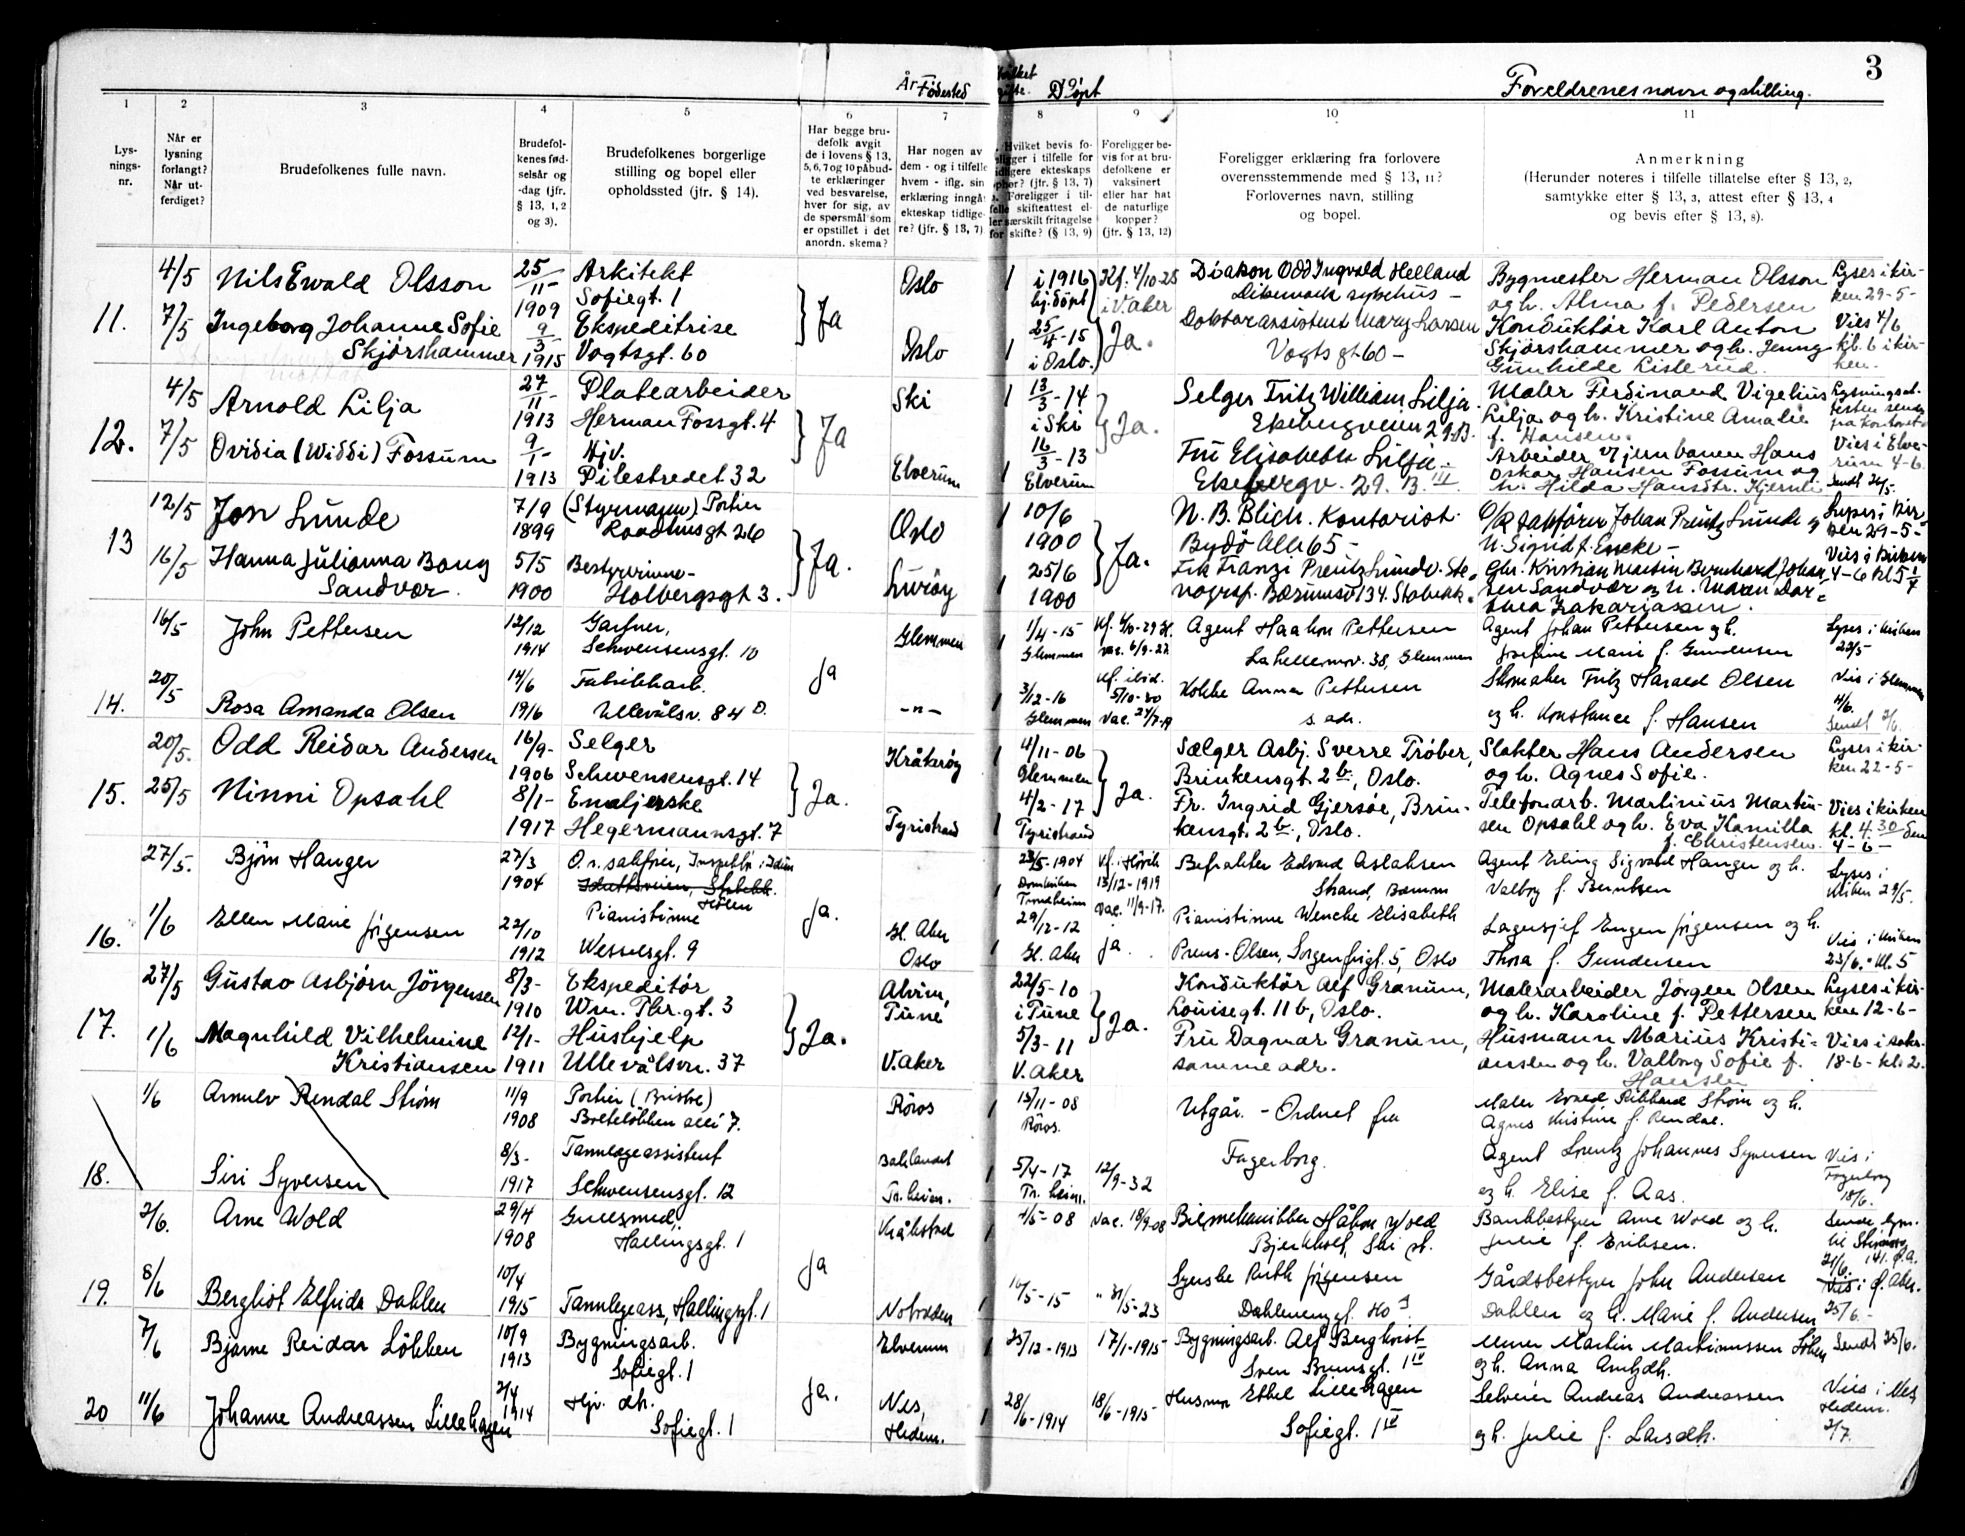 3
År Fødested
Døpt
Foreldrenes navn og stilling.
1 2 3 4 5 6 7 8 9 10 11
Lys-
nings-
nr.
Når er
lysning
forlangt?
Når ut-
ferdiget?
Brudefolkenes fulle navn.
Brudefol-
kenes fød-
selsår og
-dag (jfr.
§ 13, 1, 2
og 3).
Brudefolkenes borgerlige
stilling og bopel eller
opholdssted (jfr. § 14).
Har begge bru-
defolk avgit
de i lovens § 13,
5, 6, 7 og 10 påbud-
te erklæringer
ved besvarelse,
hver for sig, av
de spørsmål som
er opstillet i det
anordn. skema?
Har nogen av
dem - og i tilfelle
hvem - iflg. sin
erklæring inngå-
ekteskap tidlige-
re? (jfr. § 13, 7)
Hvilket bevis fo-
religger i tilfelle for
tidligere ekteskaps
ophør? (jfr. § 13, 7)
Foreligger i til-
felle skifteattest el-
ler særskilt fritagelse
for skifte? (§ 13, 9)
Foreligger be-
vis for at bru-
defolkene er
vaksinert
eller har hat
de naturlige
kopper?
(jfr. § 13, 12)
Foreligger erklæring fra forlovere
overensstemmende med § 13, 11?
Forlovernes navn, stilling
og bopel.
Anmerkning
(Herunder noteres i tilfelle tillatelse efter § 13, 2,
samtykke efter § 13, 3, attest efter § 13, 4
og bevis efter § 13, 8).
11. 4/5 7/5
Nils Ewald Olsson
25/11 1909
Arkitekt
Sofiegt. 1
Ja
Oslo
i 1916
hj.døpt
Kf. 4/10-25
i V. Aker
Diakon Odd Ingvald Helland
Dikemark sykehus -
Bygmester Herman Olsson
og h. Alma f. Pedersen
Lyses i kir-
ken 29-5-
Ingeborg Johanne Sofie
Skjørshammer
9/3 1915
Ekspeditrise
Vogtsgt. 60
Oslo
25/4-15
i Oslo.
Ja.
Doktorassistent Mary Larsen
Vogtsgt 60 -
Konduktør Karl Anton
Skjørshammer og h. Jenny
Gunhilde Listerud.
Vies 4/6
kl. 6 i kir-
ken.
12. 4/5 7/5
Arnold Lilja
27/11 1913
Platearbeider
Herman Fossgt. 4
Ja
Ski
13/3-14
i Ski
Ja.
Selger Fritz William Lilja.
Ekebergveien 29B.
Maler Ferdinand Vigelius
Lilja og h. Kristine Amalie
f. Hansen.
Lysningsat-
testen sendt
fra kontoret
Ovidia (Widdi) Fossum
9/1- 1913
Hjv.
Pilestredet 32
Elverum
16/3-13
Elverum
Fru Elisabeth Lilja.
Ekebergv. 29. B. III
Arbeider v/jernbanen Hans
Oskar Hansen Fossum og
h. Hilda Hansdtr. Kjernli
Vies i Elve-
rum 4-6.
Sendt 26/5.
13 12/5 16/5
Jon Lunde
7/9 1899
(Styrmann) Portier
Raadhusgt 26
Ja.
Oslo
10/6
1900
Ja.
N. B. Blich. Kontorist.
Bygdø Alle 65 -
O/R sakfører Johan Preutz Lunde og
h. Sigrid f. Encke -
Lyses i Kir-
ken 29-5-
Hanna Julianna Bang
Sandvær
5/5 1900
Bestyrerinne -
Holbergsgt 3.
Lurøy
25/6
1900
Frk Franzi Preutz Lunde. Ste-
nografSf. Bærumsv 134. Stabekk.
Gbr. Kristian Martin Bernhard Johan-
sen Sandvær og h. Maren Dor-
thea Zakariassen.
Vies i Kirken
4-6 kl 5
14. 16/5 20/5
John Pettersen
12/12 1914
Gartner,
Schwensensgt. 10
Ja
Glemmen
1/4-15
Glemmen
Agent Haakon Pettersen
38, Glemmen
Agent Johan Pettersen og h.
Josefine Marie f. Gundersen
Lyses i kirken
22/5
Rosa Amanda Olsen
14/6 1916
Fabrikkarb.
Ullevålsv. 84 D.
-"-
3/12-16
Glemmen
Kf. ibid.
5/10-30
Kokke Anna Pettersen
s. adr.
Skomaker Fritz Harald Olsen
og h. Konstance f. Hansen
Vies i Glemmen
4/6.
15. 20/5. 25/5
Odd Reidar Andersen
16/9- 1906
Selger
Schwensensgt. 14
Ja.
Kråkerøy
4/11-06
Glemmen
Ja.
Sælger Asbj. Sverre Trøber,
Brinkensgt. 2 b, Oslo.
Slakter Hans Andersen
og h. Agnes Sofie.
Lyses i kir-
ken 22-5-
Ninni Opsahl
8/1- 1917
Emaljerske
Hegermannsgt. 7
Tyristrand
4/2-17
Tyristrand
Fr. Ingrid Gjersøe, Brin-
kensgt. 2 b, Oslo.
Telefonarb. Martinius Martin-
sen Opsahl og h. Eva Kamilla
f. Christensen.
Vies i kirken
kl. 4.30 den
4-6-
16. 27/5. 1/6
Bjørn Hanger
27/3 1904
O.r. sakfører, Inspektør i Idun
Holen
Ja.
23/5-1904
Domkirken
Trondheim
13/12-1919
Vac. 11/9-17.
Befrakter Edvard Aslaksen
Strand, Bærum
Agent Erling Sigvald Hanger og h.
Valborg f. Berntsen
Lyses i
kirken 29/5.
Ellen Marie Jørgensen
22/10 1912
Pianistinne
Wesselsgt. 9
Gl. Aker
Oslo
29/12-12
Gl. Aker
Ja.
Pianistinne Wenche Elisabeth
Preus-Olsen, Sorgenfrigt. 5, Oslo
Lagersjef Eugen Jørgensen og h.
Thora f. Gundersen
Vies i kirken
23/6. kl. 5
17. 27/5 1/6
Gustav Asbjørn Jörgensen
8/3- 1910
Ekspeditør
Wm. Thr.gt. 3
Ja.
Alvim,
Tune
22/5-10
i Tune
Ja.
Konduktør Alf Granum,
Louisegt. 11 b, Oslo.
Malerarbeider Jörgen Olsen
og h. Karoline f. Pettersen
Lyses i kir-
ken 12-6-
Magnhild Vilhelmine
Kristiansen
12/1- 1911
Hushjelp
Ullevålsvn. 37
V. Aker
5/3-11
V. Aker
Fru Dagmar Granum,
samme adr.
Husmann Marius Kristi-
ansen og h. Valborg Sofie f.
Hansen
Vies i sakr.
18-6- kl. 2.
18. 1/6
Arnulv Rendal Strøm
11/9 1908
Portier (Bristol)
Bolteløkken alle 7.
Røros
15/11-08
Røros.
Utgår. - Ordnet fra
Fagerborg.
Maler Evald Rikhard Strøm og h.
Agnes Kristine f. Rendal.
Siri Syversen
8/3- 1917
Tannlægeassistent
Schwensensgt. 12
Baklandet
Tr.heim.
5/4-17
Tr. heim.
12/9-32
Agent Lorentz Johannes Syversen
og h. Elise f. Aas.
Vies i
Fagerborg
18/6.
19. 2/6. 8/6
Arne Wold
29/4 1908
Gullsmed,
Hallingsgt. 1
Ja
Kråkstad
4/5-08
Vac. 18/9-08
Bilmekanikker Håkon Wold
Bjerkholt, Ski st.
Bankbestyrer Arne Wold og h.
Julie f. Eriksen.
Berghot Elfrida Dahlen
10/4 1915
Tannlegeass, Hallingsgt. 1
Notodden
16/5-15
" 31/5-23
Syerske Ruth Jørgensen
Gårdsbestyrer John Andersen
Dahlen og h. Marie f. Andersen
25/6.-
20 7/6 11/6
Bjarne Reidar Løkken
10/9 1913
Bygningsarb.
Sofiegt. 1
Ja.
Elverum
25/12-1913
17/1-1915-
Bygningsarb. Alf Berghvist
Sven Brunsgt. 1 IV
Murer Martin Martinussen Løken
og h. Anna Amtzdh.
Sendt 25/6.
Johanne Andreassen Lillehagen
2/4 1914
Hjv. dtr.
Sofiegt. 1
Nes,
Hedem.
28/6-1914
18/6-1915-
Husmor Ethel Lillehagen
Sofiegt. 1 IV
Selveier Andreas Andreassen
og h. Julie f. Larsdh.
Vies i Nes,
Hedem.
2/7.